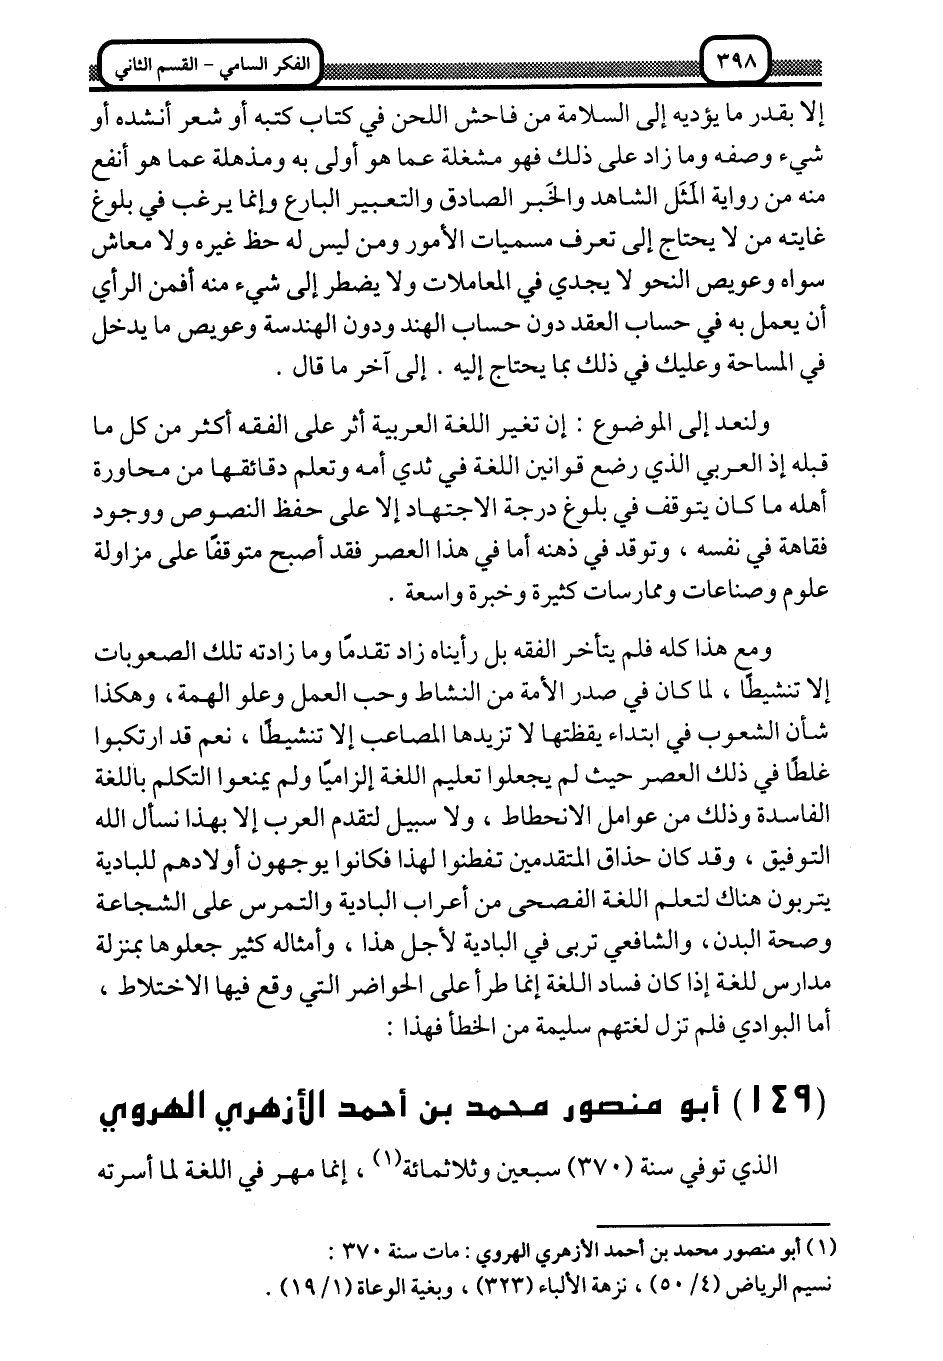 ٣٩٨
الفكر السامي - القسم الثاني
إلا بقدر ما يؤديه إلى السلامة من فاحش اللحن في كتاب كتبه أو شعر أنشده أو
شيء وصفه وما زاد على ذلك فهو مشغلة عما هو أولى به ومذهلة عما هو أنفع
منه من رواية المَثَل الشاهد والخَبر الصادق والتعبير البارع وإنما يرغب في بلوغ
غايته من لا يحتاج إلى تعرف مسميات الأمور ومن ليس له حظ غيره ولا معاش
سواه وعويص النحو لا يجدي في المعاملات ولا يضطر إلى شيء منه أفمن الرأي
أن يعمل به في حساب العقد دون حساب الهند ودون الهندسة وعويص ما يدخل
في المساحة وعليك في ذلك بما يحتاج إليه . إلى آخر ما قال .
ولنعد إلى الموضوع : إن تغير اللغة العربية أثر على الفقه أكثر من كل ما
قبله إذ العربي الذي رضع قوانين اللغة في ثدي أمه وتعلم دقائقها من محاورة
أهله ما كان يتوقف في بلوغ درجة الاجتهاد إلا على حفظ النصوص ووجود
فقاهة في نفسه ، وتوقد في ذهنه أما في هذا العصر فقد أصبح متوقفًا على مزاولة
علوم وصناعات وممارسات كثيرة وخبرة واسعة .
ومع هذا كله فلم يتأخر الفقه بل رأيناه زاد تقدمًا وما زادته تلك الصعوبات
إلا تنشيطًا ، لما كان في صدر الأمة من النشاط وحب العمل وعلو الهمة ، وهكذا
شأن الشعوب في ابتداء يقظتها لا تزيدها المصاعب إلا تنشيطًا ، نعم قد ارتكبوا
غلطًا في ذلك العصر حيث لم يجعلوا تعليم اللغة إلزاميًا ولم يمنعوا التكلم باللغة
الفاسدة وذلك من عوامل الانحطاط ، ولا سبيل لتقدم العرب إلا بهذا نسأل الله
التوفيق ، وقد كان حذاق المتقدمين تفطنوا لهذا فكانوا يوجهون أولادهم للبادية
يتربون هناك لتعلم اللغة الفصحى من أعراب البادية والتمرس على الشجاعة
وصحة البدن، والشافعي تربى في البادية لأجل هذا ، وأمثاله كثير جعلوها بمنزلة
مدارس للغة إذا كان فساد اللغة إنما طرأ على الحواضر التي وقع فيها الاختلاط ،
أما البوادي فلم تزل لغتهم سليمة من الخطأ فهذا :
(١٤٩) أبو منصور محمد بن أحمد الأزهري الهروي
الذي توفي سنة (٣٧٠) سبعين وثلاثمائة(١) ، إنما مهر في اللغة لما أسرته
(١) أبو منصور محمد بن أحمد الأزهري الهروي : مات سنة ٣٧٠ :
نسيم الرياض (٤/ ٥٠) ، نزهة الألباء (٣٢٣) ، وبغية الوعاة (١/ ١٩) .